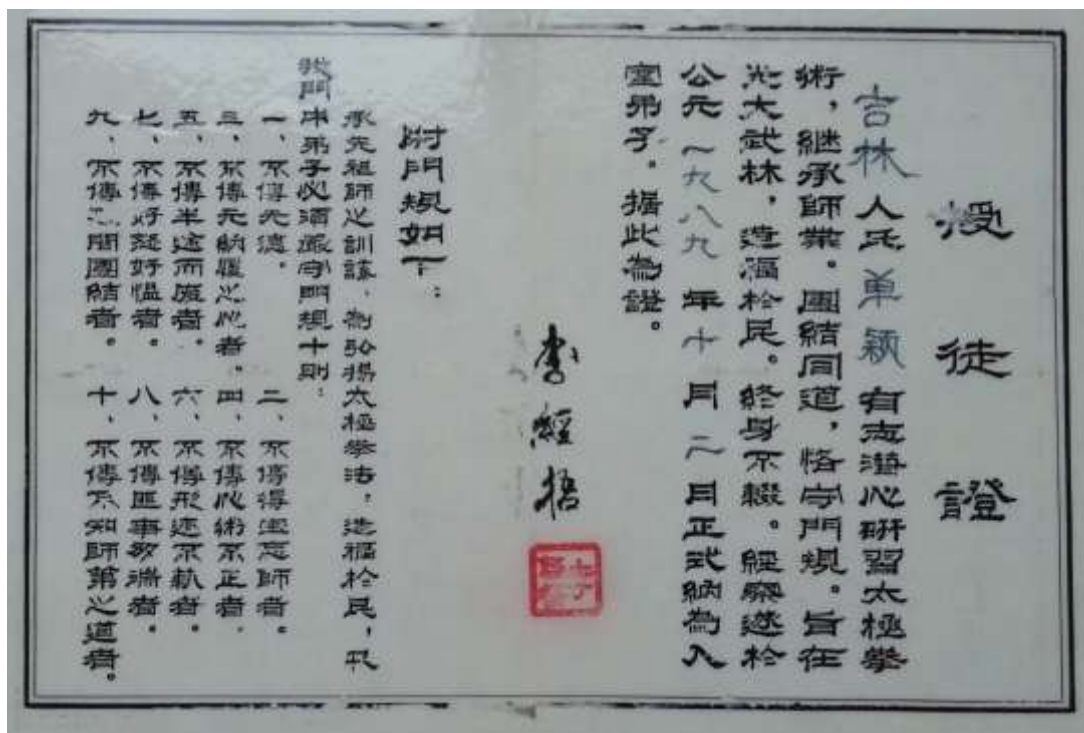 授徒證
吉林人氏單颖有志潛心研習太極拳
術，繼承師業。團結同道，恪守門規。旨在
光大武林，造福於民。終身不輟。經察遂於
公元一九八九年十月二日正式納為入
室弟子。據此為證。
李經梧
附門規如下：
承先祖師之訓誡，為弘揚太極拳法，造福於民，凡
我門中弟子必須嚴守門規十則：
一、不傳失德。 二、不傳得藝忘師者。
三、不傳無納履之心者。 四、不傳心術不正者。
五、不傳半途而廢者。 六、不傳形迹不軌者。
七、不傳好怒好愠者。 八、不傳匪事多端者。
九、不傳挑間團結者。 十、不傳不知師第之道者。